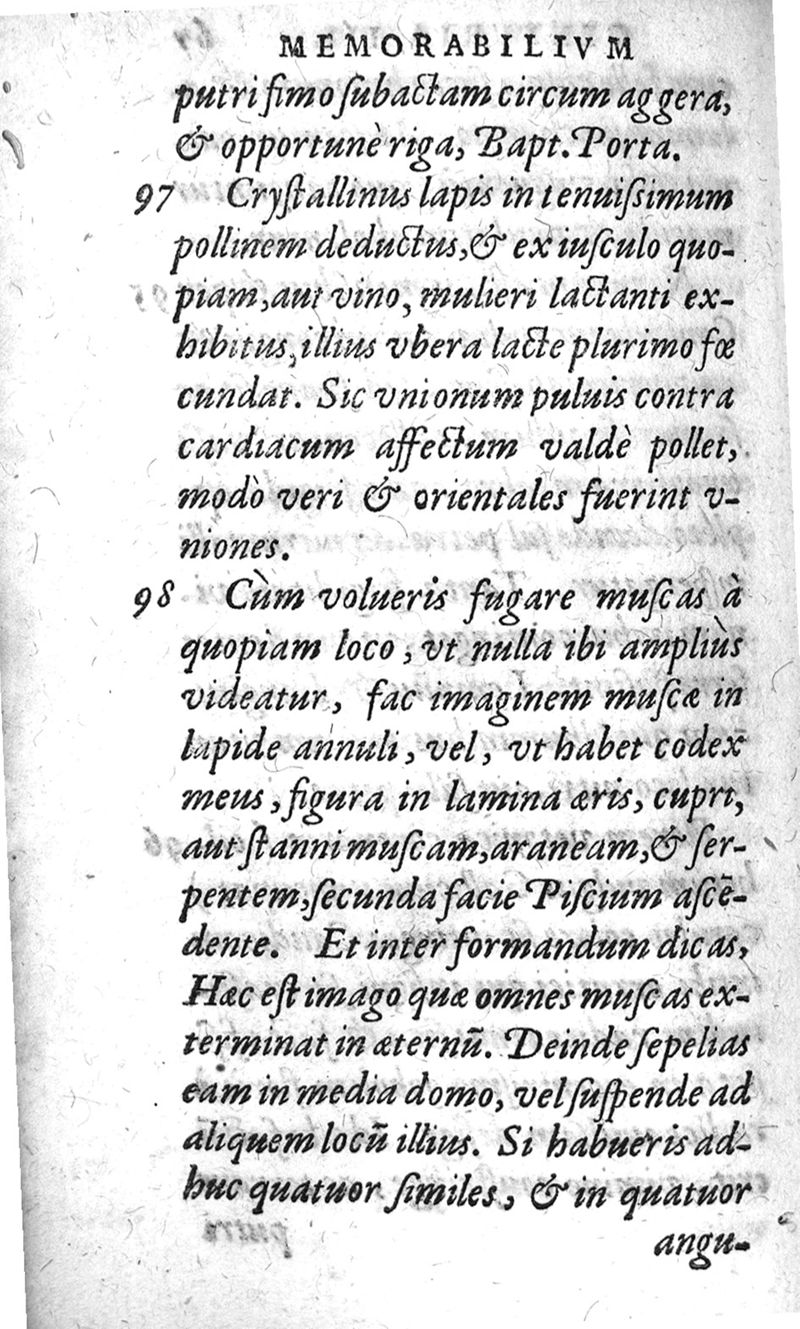 MEMORABILIVM
putri fimo ſubactam circum aggera,
& opportunè riga, Bapt. Porta.
97 Cryſtallinus lapis in tenuiſsimum
pollinem deductus, & ex iuſculo quo-
piam, aut vino, mulieri lactanti ex-
hibitus, illius vbera lacte plurimo fœ
cundat. Sic vnionum puluis contra
cardiacum affectum valdè pollet,
modò veri & orientales fuerint v-
niones.
98 Cùm volueris fugare muſcas à
quopiam loco, vt nulla ibi ampliùs
videatur, fac imaginem muſcæ in
lapide annuli, vel, vt habet codex
meus, figura in lamina æris, cupri,
aut ſtanni muſcam, araneam, & ſer-
pentem, ſecunda facie Piſcium aſcē-
dente. Et inter formandum dicas,
Hæc eſt imago quæ omnes muſcas ex-
terminat in æternū. Deinde ſepelias
eam in media domo, vel ſuſpende ad
aliquem locū illius. Si habueris ad-
huc quatuor ſimiles, & in quatuor
angu-